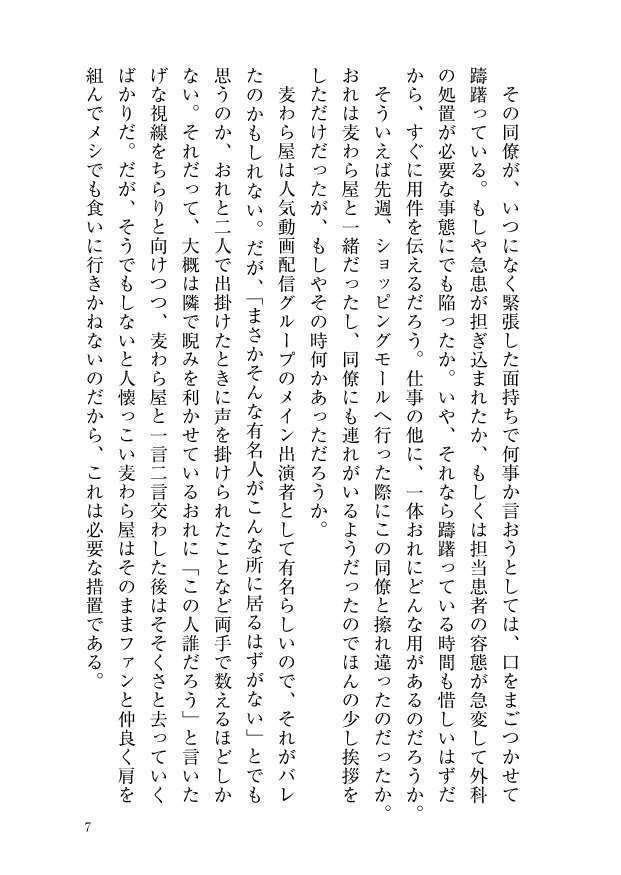 その同僚が、いつになく緊張した面持ちで何事か言おうとしては、口をまごつかせて
躊躇っている。もしや急患が担ぎ込まれたか、もしくは担当患者の容態が急変して外科
の処置が必要な事態にでも陥ったか。いや、それなら躊躇っている時間も惜しいはずだ
から、すぐに用件を伝えるだろう。仕事の他に、一体おれにどんな用があるのだろうか。
　そういえば先週、ショッピングモールへ行った際にこの同僚と擦れ違ったのだったか。
おれは麦わら屋と一緒だったし、同僚にも連れがいるようだったのでほんの少し挨拶を
しただけだったが、もしやその時何かあっただろうか。
　麦わら屋は人気動画配信グループのメイン出演者として有名らしいので、それがバレ
たのかもしれない。だが、「まさかそんな有名人がこんな所に居るはずがない」とでも
思うのか、おれと二人で出掛けたときに声を掛けられたことなど両手で数えるほどしか
ない。それだって、大概は隣で睨みを利かせているおれに「この人誰だろう」と言いた
げな視線をちらりと向けつつ、麦わら屋と一言二言交わした後はそそくさと去っていく
ばかりだ。だが、そうでもしないと人懐っこい麦わら屋はそのままファンと仲良く肩を
組んでメシでも食いに行きかねないのだから、これは必要な措置である。
7